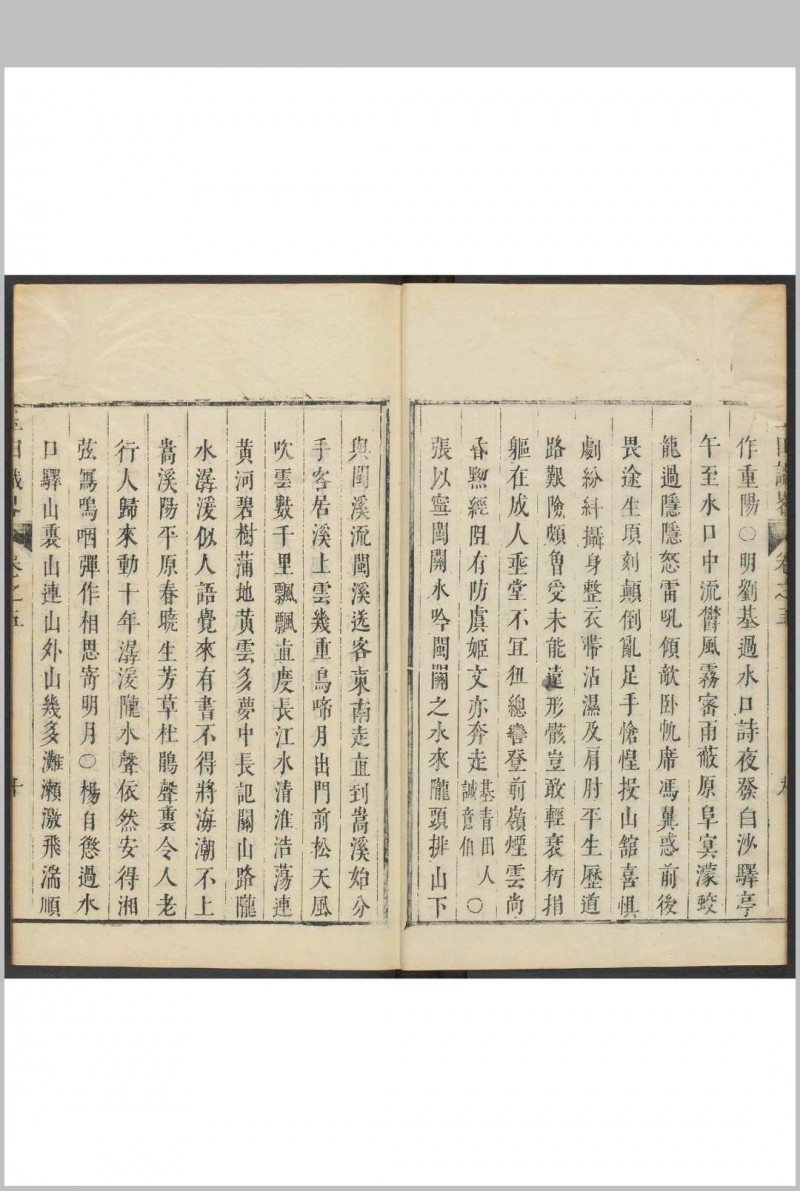 作重陽○明劉基過水口詩夜發白沙驛亭
午至水口中流鬱風霧密雨蔽原阜冥濛蛟
龍過隱隱怒雷吼傾欹卧帆席馮異惑前後
畏途生頃刻顛倒亂足手愴惶投山舘喜惧
劇紛糾攝身整衣帶沾濕及肩肘平生歷道
路艱險頗魯受未能遠形骸豈敢輕衰朽捐
軀在成人垂堂不冝狃總轡登前嶺煙雲尚
昏黙經阻有防虞姬文亦奔走基青田人誠意伯○
張以寧閩關水吟閩關之水來隴頭排山下
與閩溪流閩溪送客東南走直到嵩溪始分
手客居溪上雲幾重烏啼月出門前松天風
吹雲數千里飄飄直度長江水清淮浩蕩連
黃河碧樹蒲地黃雲多夢中長記關山路隴
水潺湲似人語覺來有書不得將海潮不上
嵩溪陽平原春曉生芳草杜鵑聲裏令人老
行人歸來動十年潺湲隴水聲依然安得湘
弦寫嗚咽彈作相思寄明月○楊自懲過水
口驛山裏山連山外山幾多灘瀨激飛湍順
卷之五
九
卷之五
十